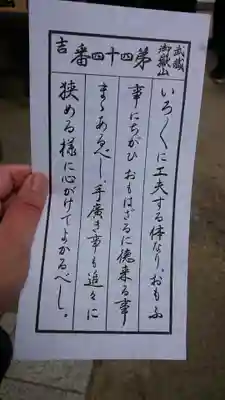 武蔵
御嶽山
第四十四番 吉
いろ〱に工夫する体なり、おもふ
事にちがひおもはざるに億来る事
まゝあるべし、手廣き事も追々に
狭める様に心がけてよかるべし。